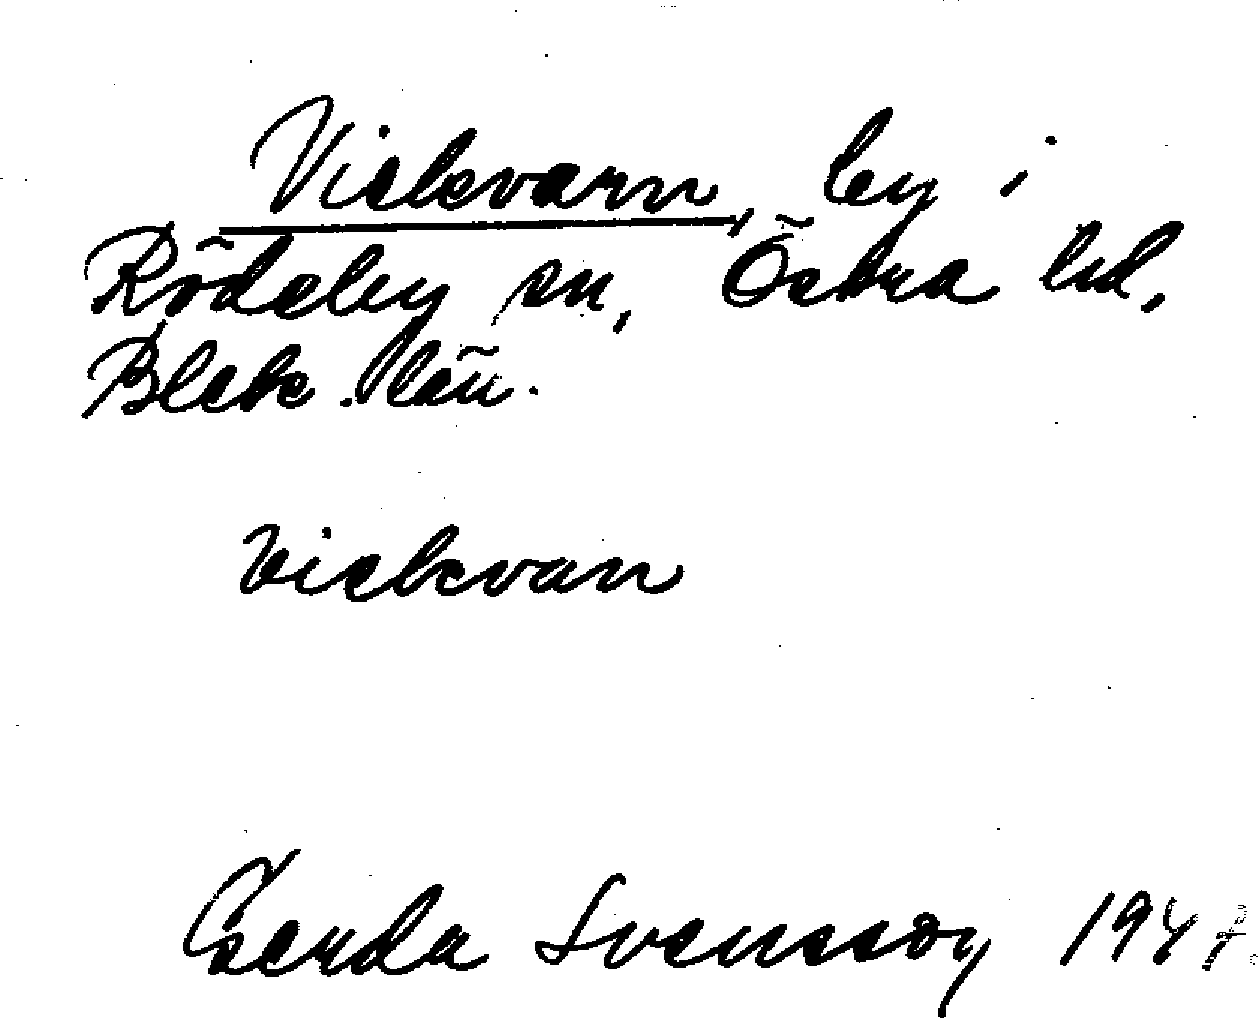 Viskvarn, by i
Rödeby sn, Östra hd,
Blek. län.
Viskvan
Gerda Svensson 1947.